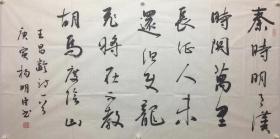 秦時明月漢
時關萬里
長征人未
還但使龍
飛將在不教
胡馬度陰山
王昌齡詩一首
庚寅楊明臣書